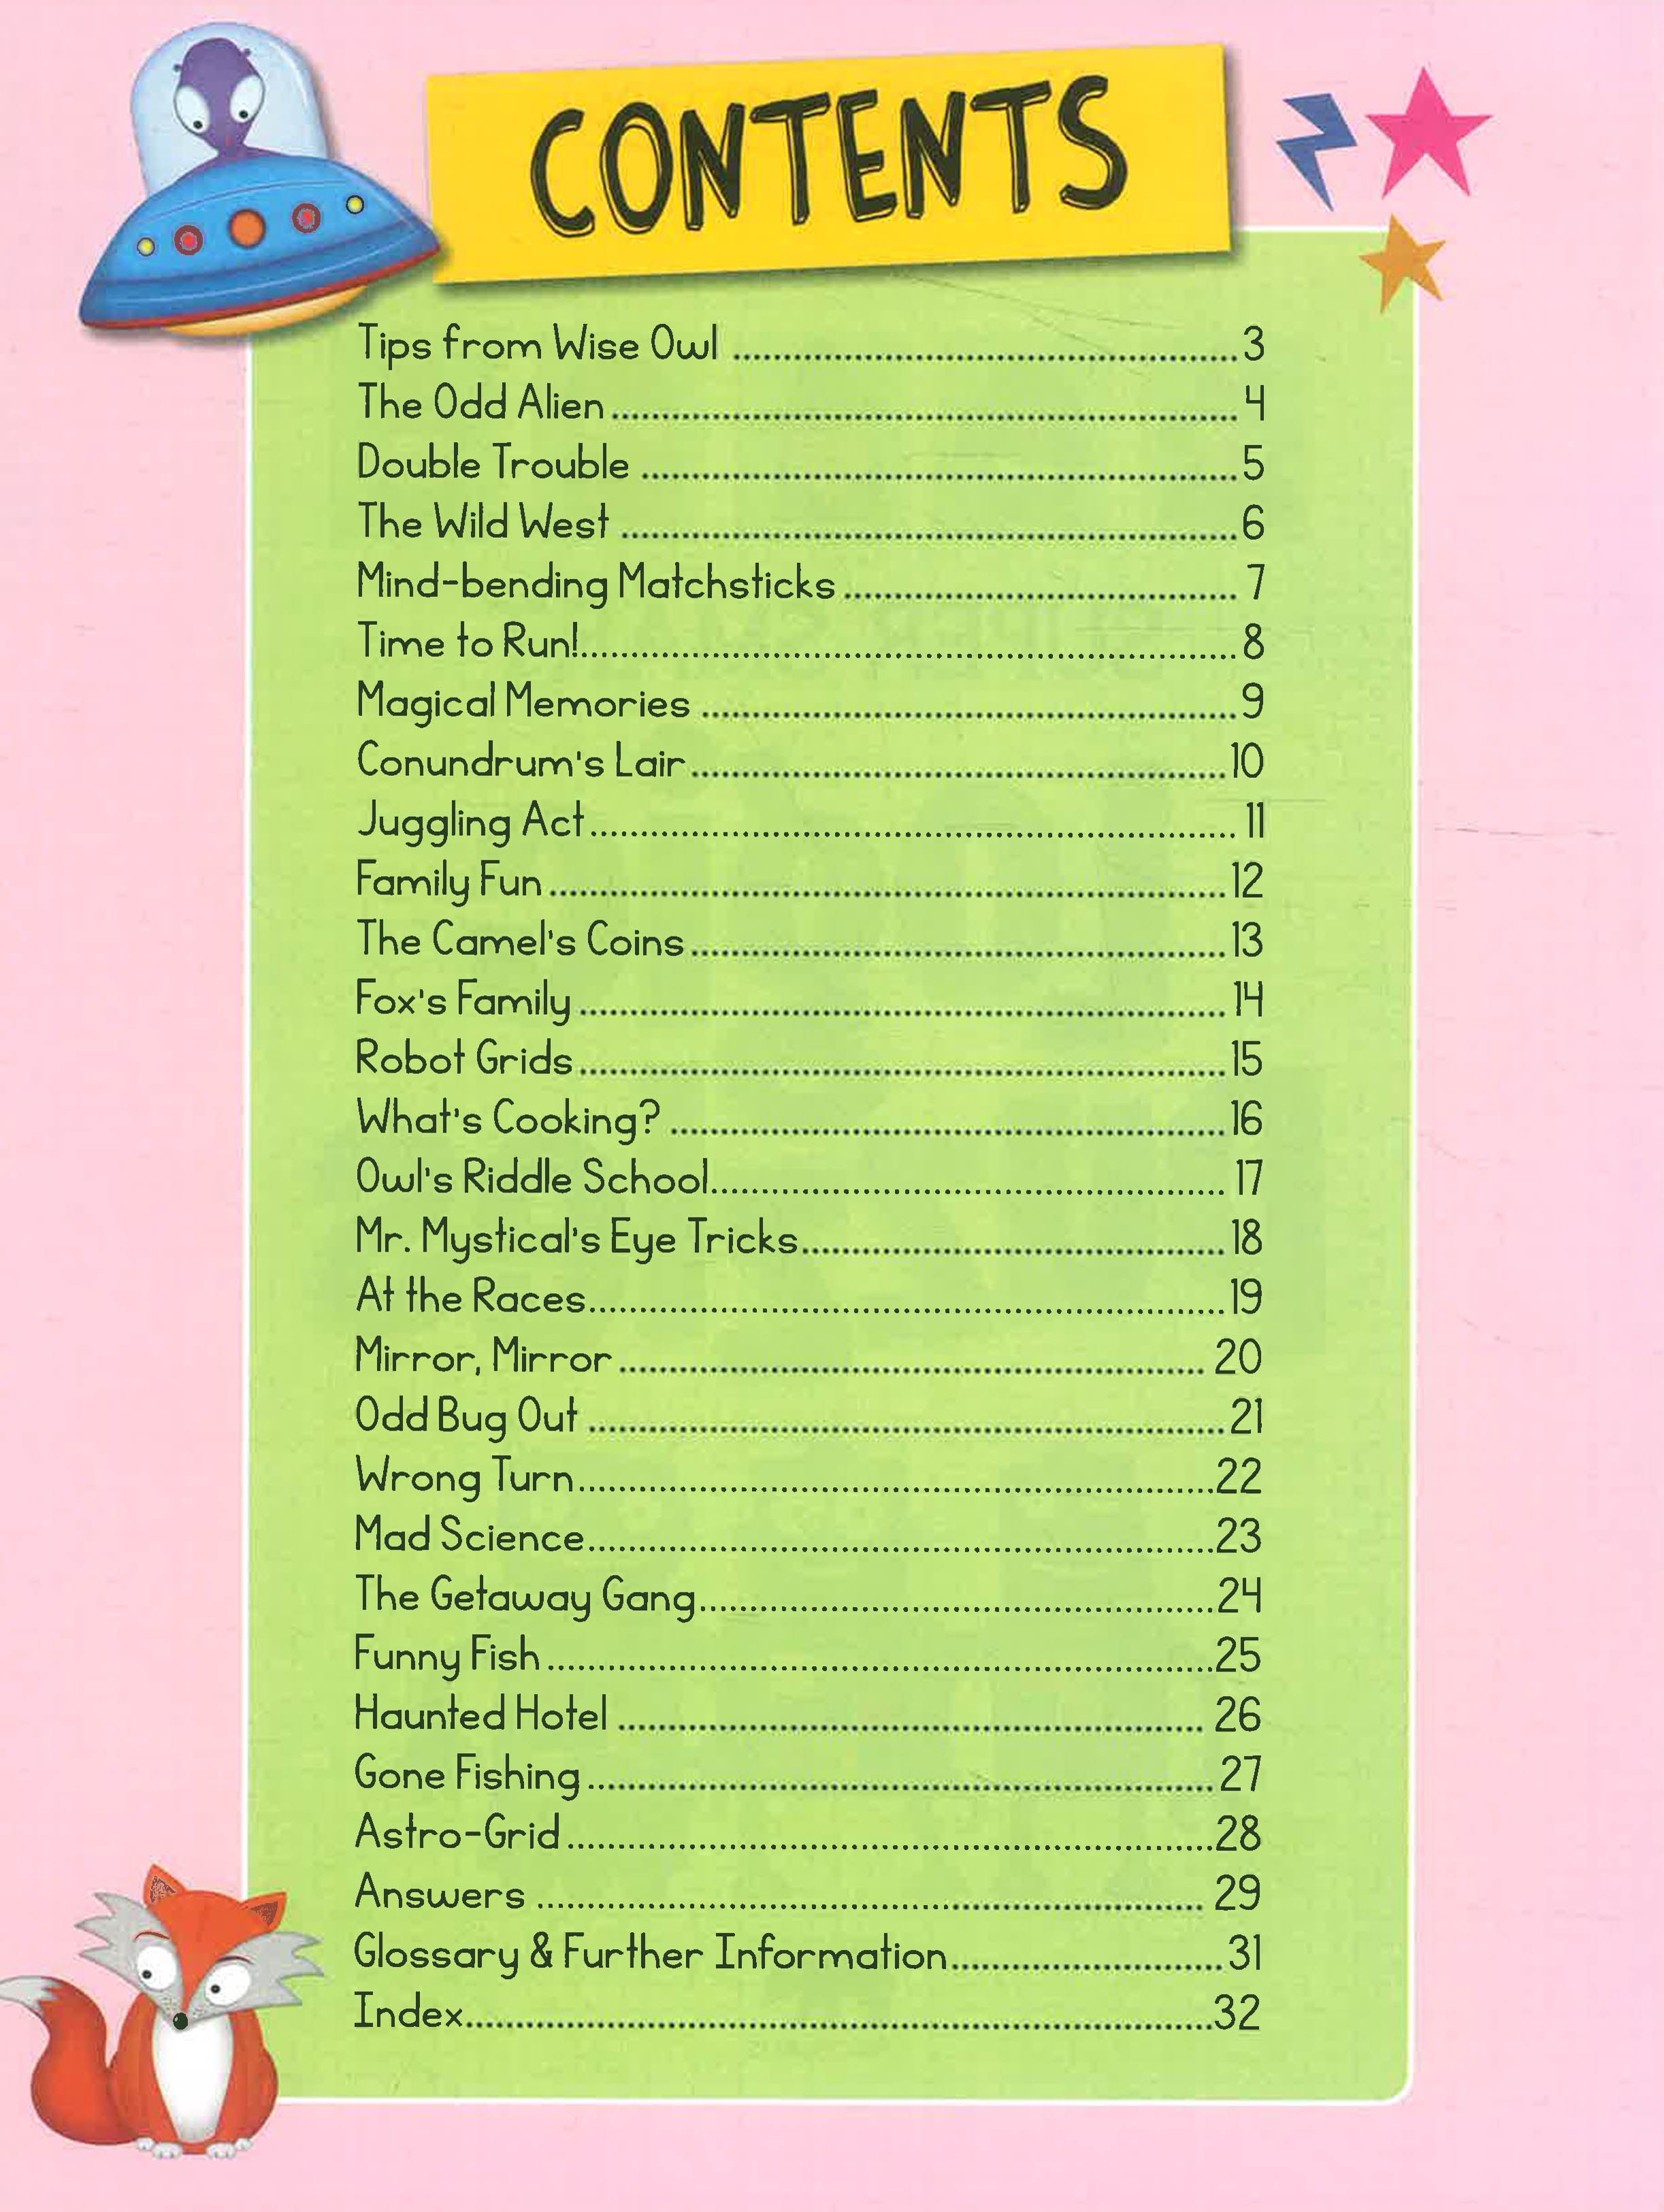 CONTENTS
Tips from Wise Owl ........................................ 3
The Odd Alien ........................................ 4
Double Trouble ........................................ 5
The Wild West ........................................ 6
Mind-bending Matchsticks ........................................ 7
Time to Run! ........................................ 8
Magical Memories ........................................ 9
Conundrum's Lair ........................................ 10
Juggling Act ........................................ 11
Family Fun ........................................ 12
The Camel's Coins ........................................ 13
Fox's Family ........................................ 14
Robot Grids ........................................ 15
What's Cooking? ........................................ 16
Owl's Riddle School ........................................ 17
Mr. Mystical's Eye Tricks ........................................ 18
At the Races ........................................ 19
Mirror, Mirror ........................................ 20
Odd Bug Out ........................................ 21
Wrong Turn ........................................ 22
Mad Science ........................................ 23
The Getaway Gang ........................................ 24
Funny Fish ........................................ 25
Haunted Hotel ........................................ 26
Gone Fishing ........................................ 27
Astro-Grid ........................................ 28
Answers ........................................ 29
Glossary & Further Information ........................................ 31
Index ........................................ 32